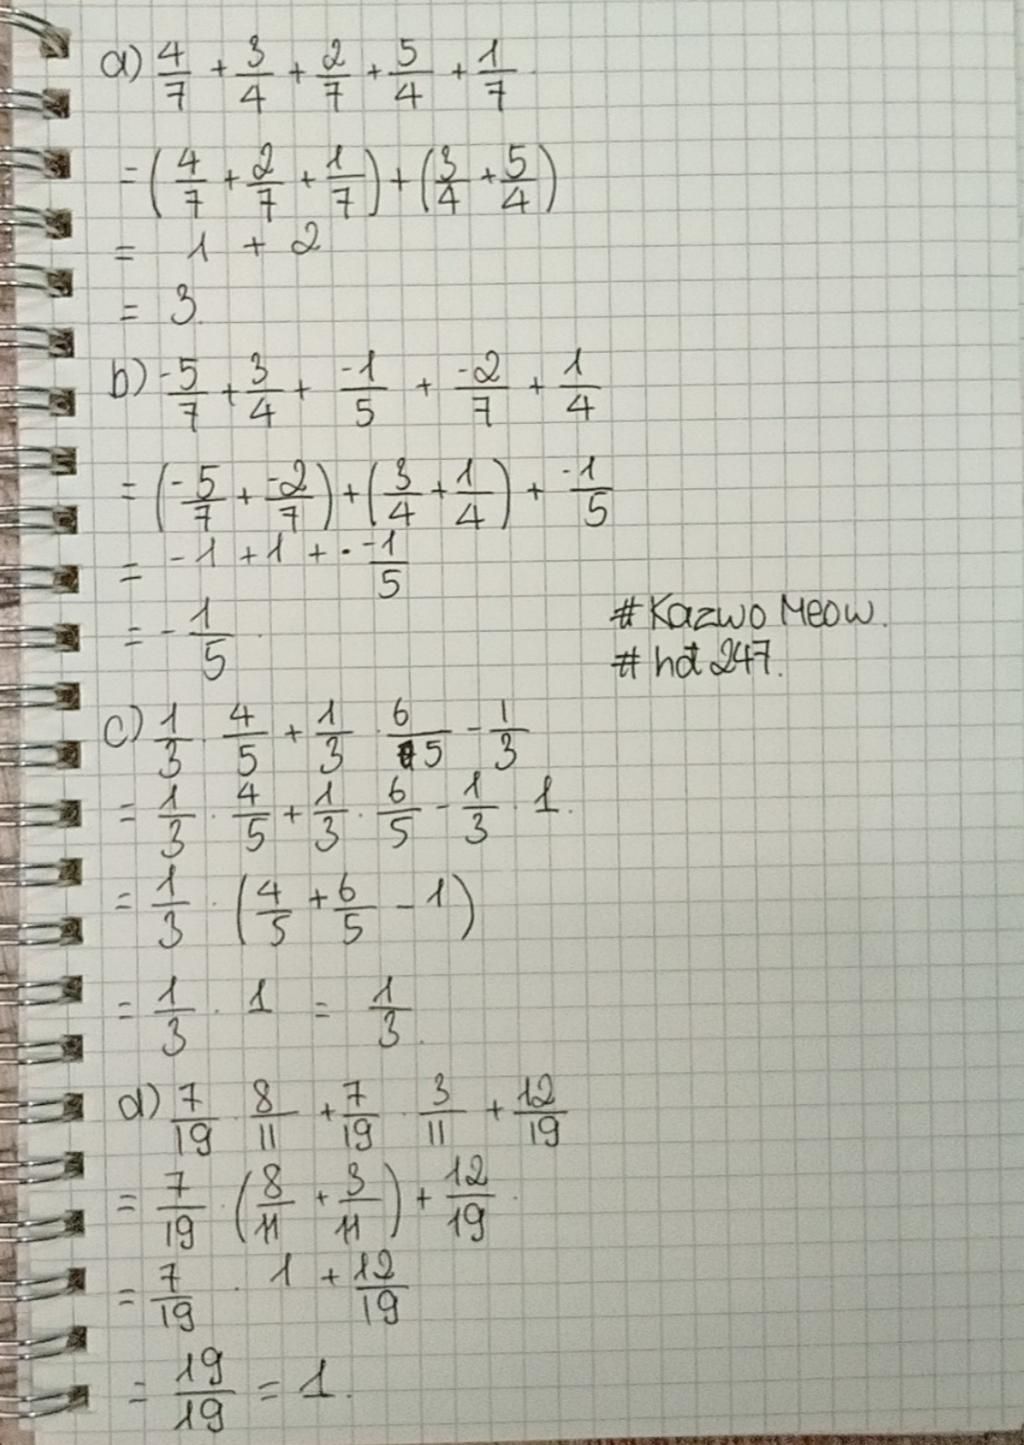 a) 4/7 + 3/4 + 2/7 + 5/4 + 1/7
= (4/7 + 2/7 + 1/7) + (3/4 + 5/4)
= 1 + 2
= 3.
b) -5/7 + 3/4 + -1/5 + -2/7 + 1/4
= (-5/7 + -2/7) + (3/4 + 1/4) + -1/5
= -1 + 1 + -1/5
= -1/5
# Kazwo Meow.
# hdt 247.
c) 1/3 . 4/5 + 1/3 . 6/5 - 1/3
= 1/3 . 4/5 + 1/3 . 6/5 - 1/3 . 1.
= 1/3 . (4/5 + 6/5 - 1)
= 1/3 . 1 = 1/3.
d) 7/19 . 8/11 + 7/19 . 3/11 + 12/19
= 7/19 . (8/11 + 3/11) + 12/19.
= 7/19 . 1 + 12/19
= 19/19 = 1.